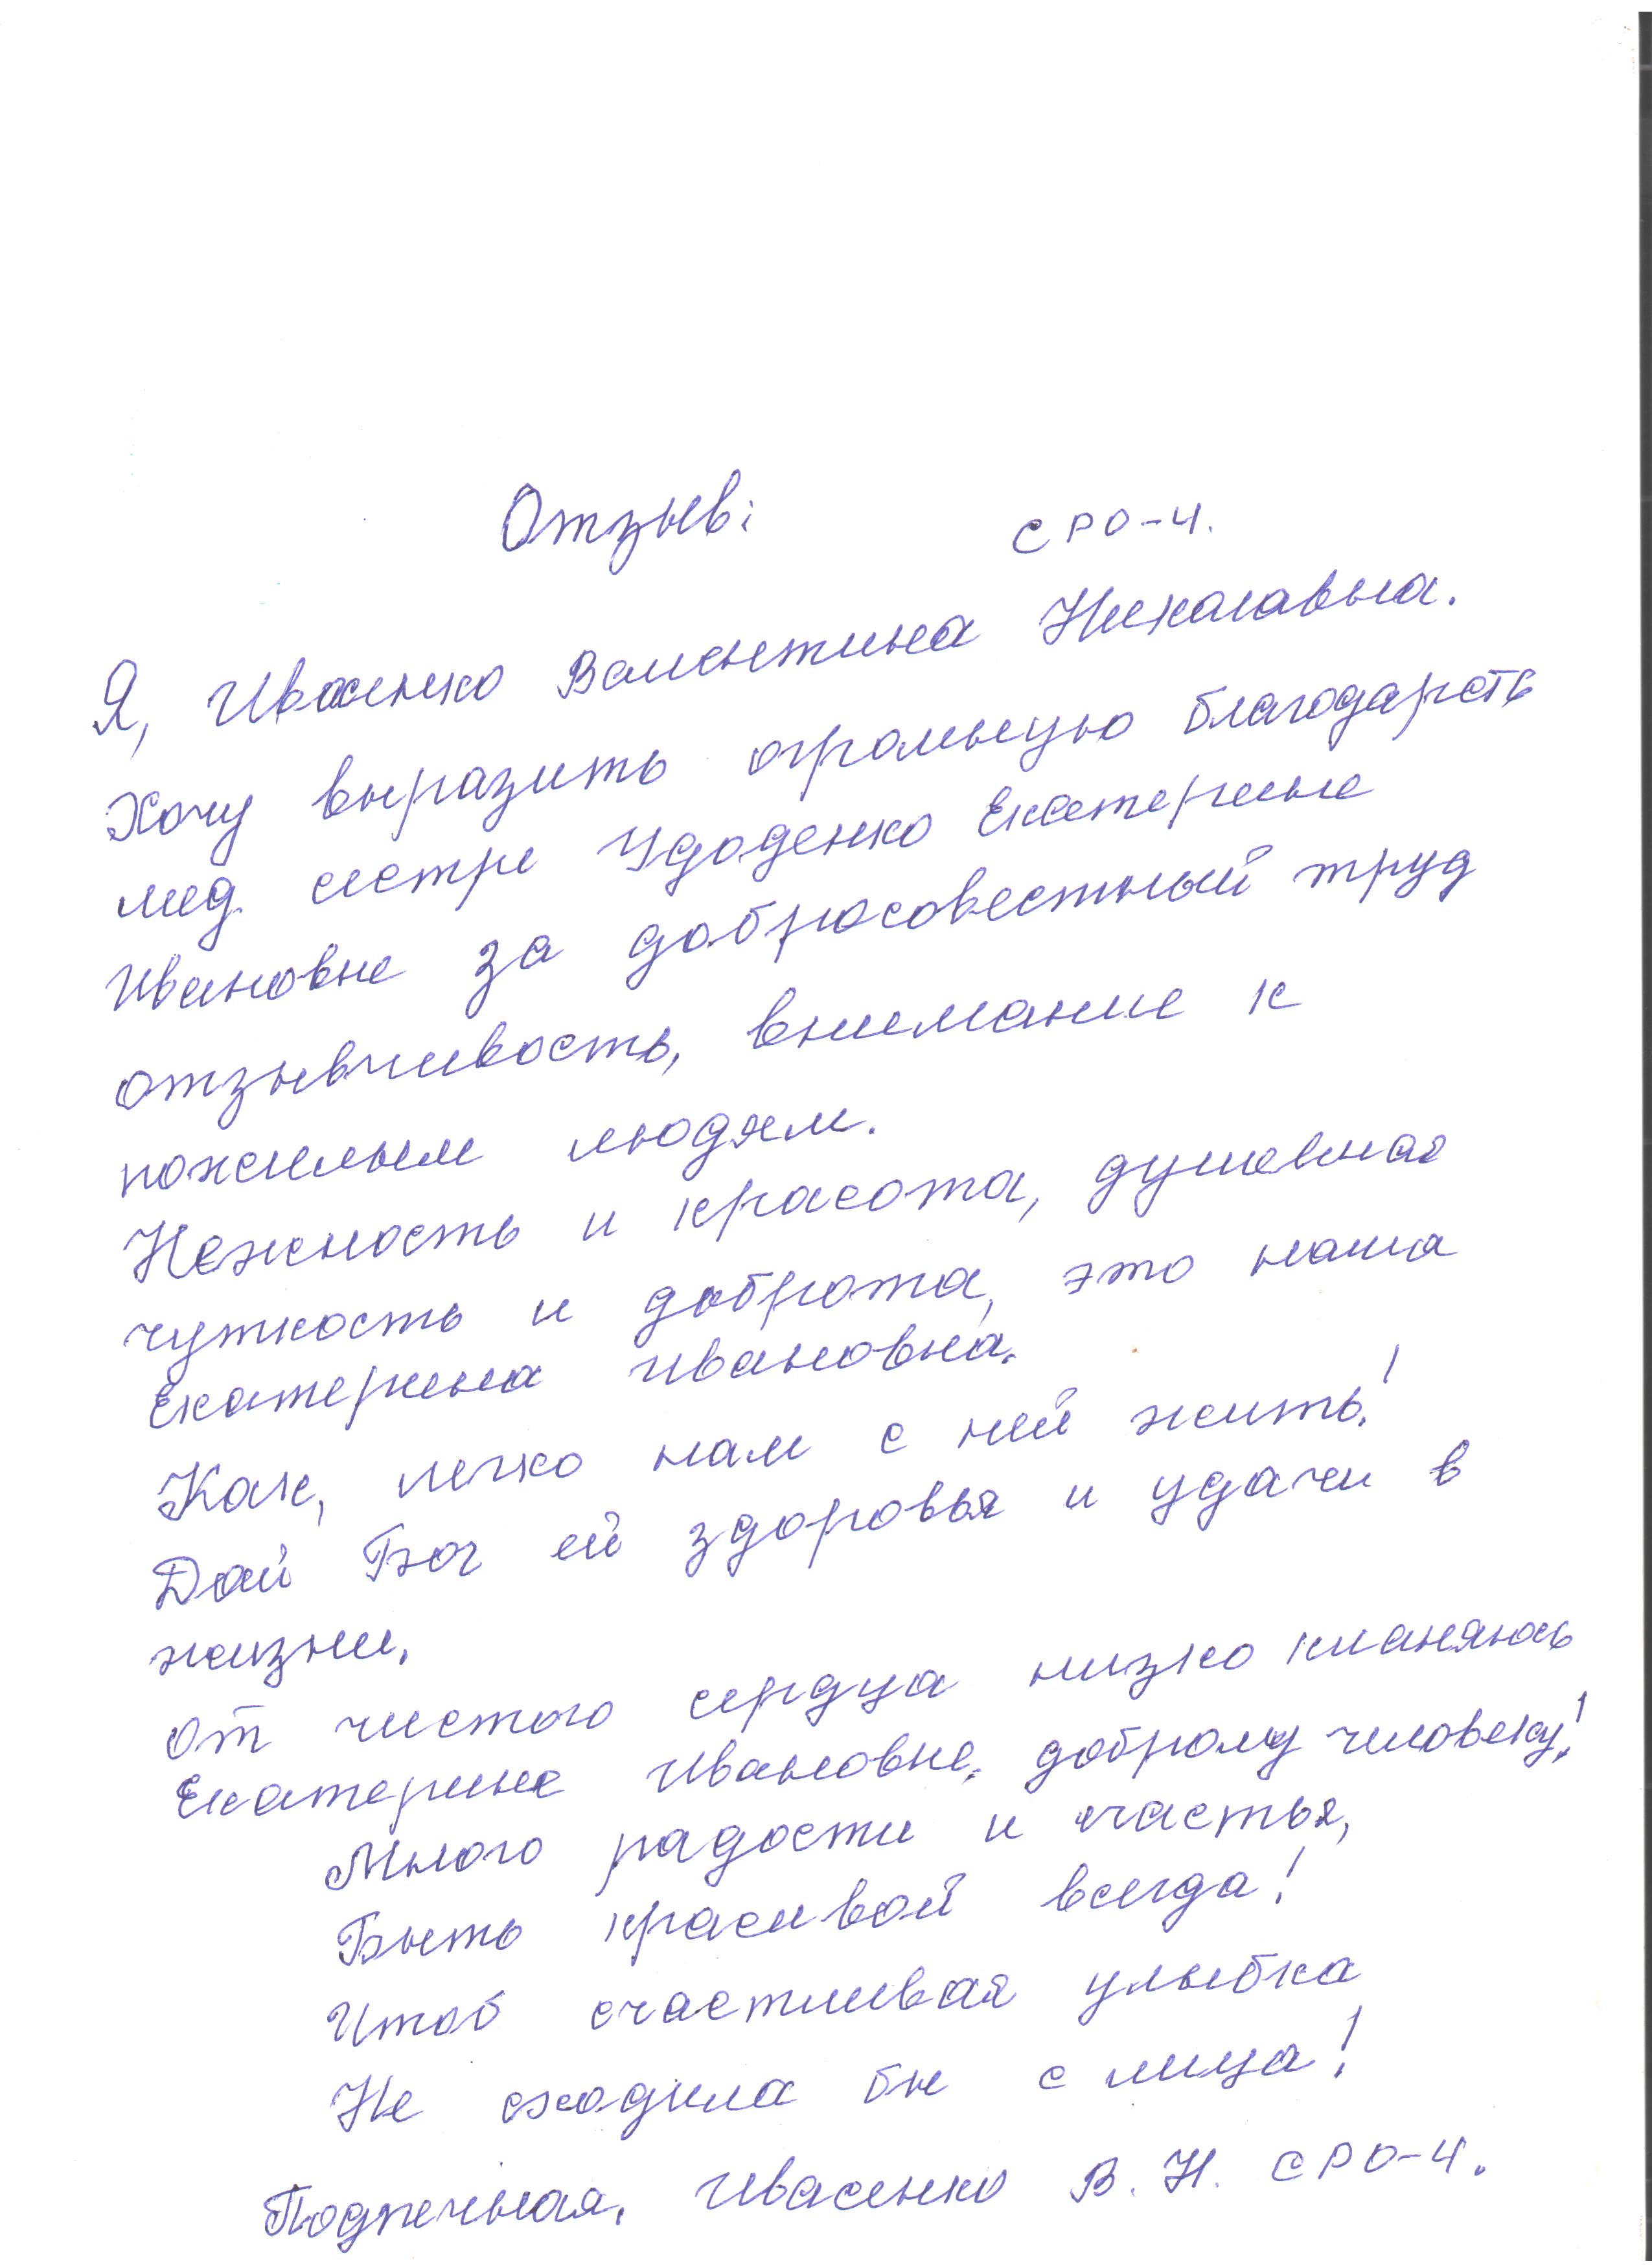 Отзыв: СРО-4.
Я, Ивасенко Валентина Николавна.
Хочу выразить огромную благодарсть
мед. сестре Удоденко Екатерине
Ивановне за добросовестный труд
отзывчивость, внимание к
пожилым людям.
Нежность и красота, душевная
чуткость и доброта, это наша
Екатерина Ивановна.
Как, легко нам с ней жить!
Дай Бог ей здоровья и удачи в
жизни.
От чистого сердца низко кланяюсь
Екатерине Ивановне, доброму человеку!
Много радости и счастья,
Быть красивой всегда!
Чтоб счастливая улыбка
Не сходила бы с лица!
Подпечная. Ивасенко В. Н. СРО-4.